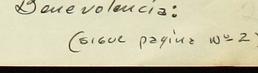 Benevolencia:
(sigue pagina Nº 2)